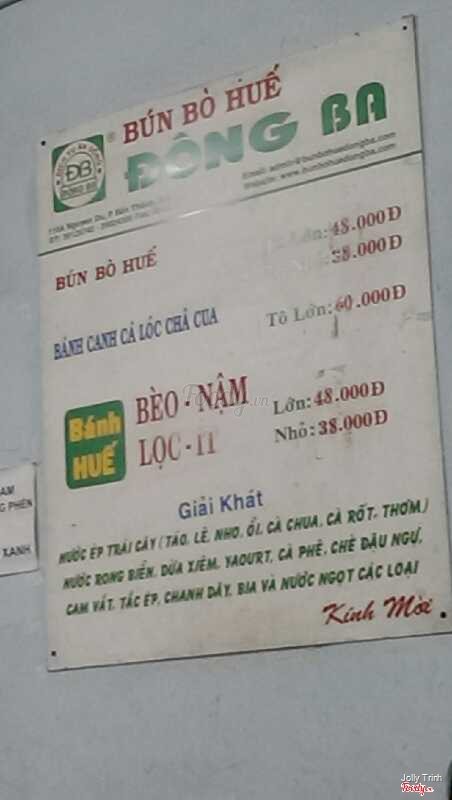 BÚN BÒ HUẾ
ĐÔNG BA
®
ĐB
ĐÔNG BA
110A Nguyen Du, P. Bến Thành,
Email: admin@bunbohuedongba.com
Website: www.bunbohuedongba.com
BÚN BÒ HUẾ
Lớn: 48.000Đ
Nhỏ: 38.000Đ
BÁNH CANH CÁ LÓC CHẢ CUA
Tô Lớn: 60.000Đ
Bánh HUẾ
BÈO - NẬM
LỌC - ÍT
Lớn: 48.000Đ
Nhỏ: 38.000Đ
Foody.vn
Giải Khát
NƯỚC ÉP TRÁI CÂY (TÁO, LÊ, NHO, ỔI, CÀ CHUA, CÀ RỐT, THƠM)
NƯỚC RONG BIỂN, DỪA XIÊM, YAOURT, CÀ PHÊ, CHÈ ĐẬU NGỰ,
CAM VẮT, TẮC ÉP, CHANH DÂY, BIA VÀ NƯỚC NGỌT CÁC LOẠI
Kính Mời
AM
G PHÈN
XANH
Jolly Trinh
Foody.vn